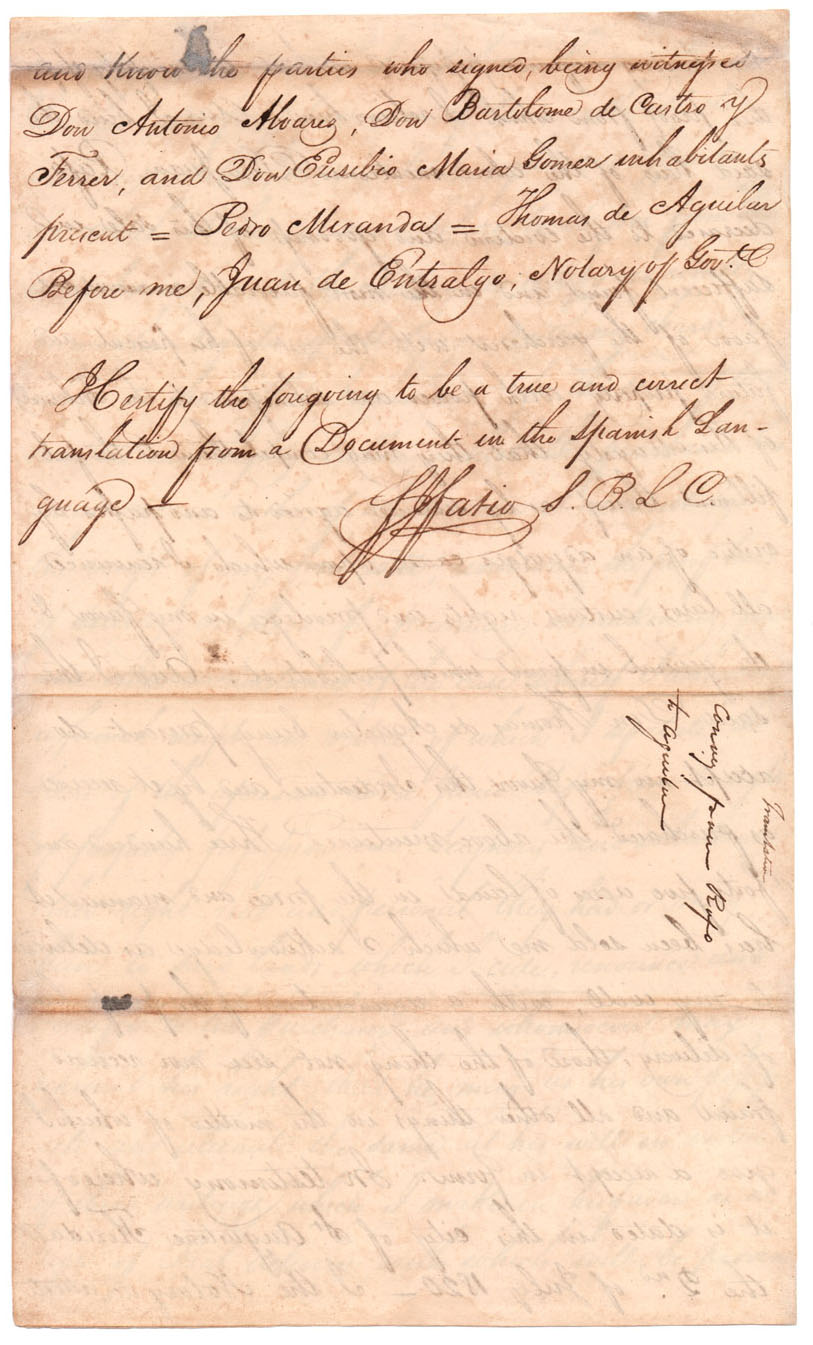 and know the parties who signed, being witnesses
Don Antonio Alvarez, Don Bartolome de Castro y
Ferrer, and Don Eusebio Maria Gomez inhabitants
present = Pedro Miranda = Thomas de Aguilar
Before me, Juan de Entralgo, Notary of Govt. &
I Certify the foregoing to be a true and correct
translation from a Document in the Spanish Lan-
guage —
F J Fatio S. B. L C.
Translation
Convey. from
to Aguilar